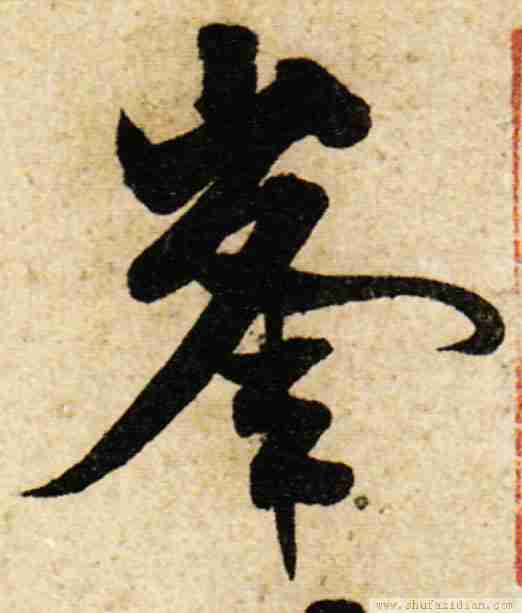 峯
www.shufazidian.com